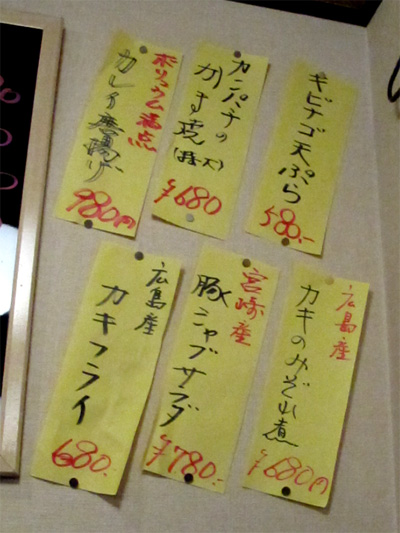 キビナゴ天ぷら
580.-
カンパチの
かま焼(特大)
¥680
ボリューム満点
カレイ唐揚げ
980円
広島産
カキのみぞれ煮
¥680円
宮崎産
豚シャブサラダ
¥780.-
広島産
カキフライ
680.-